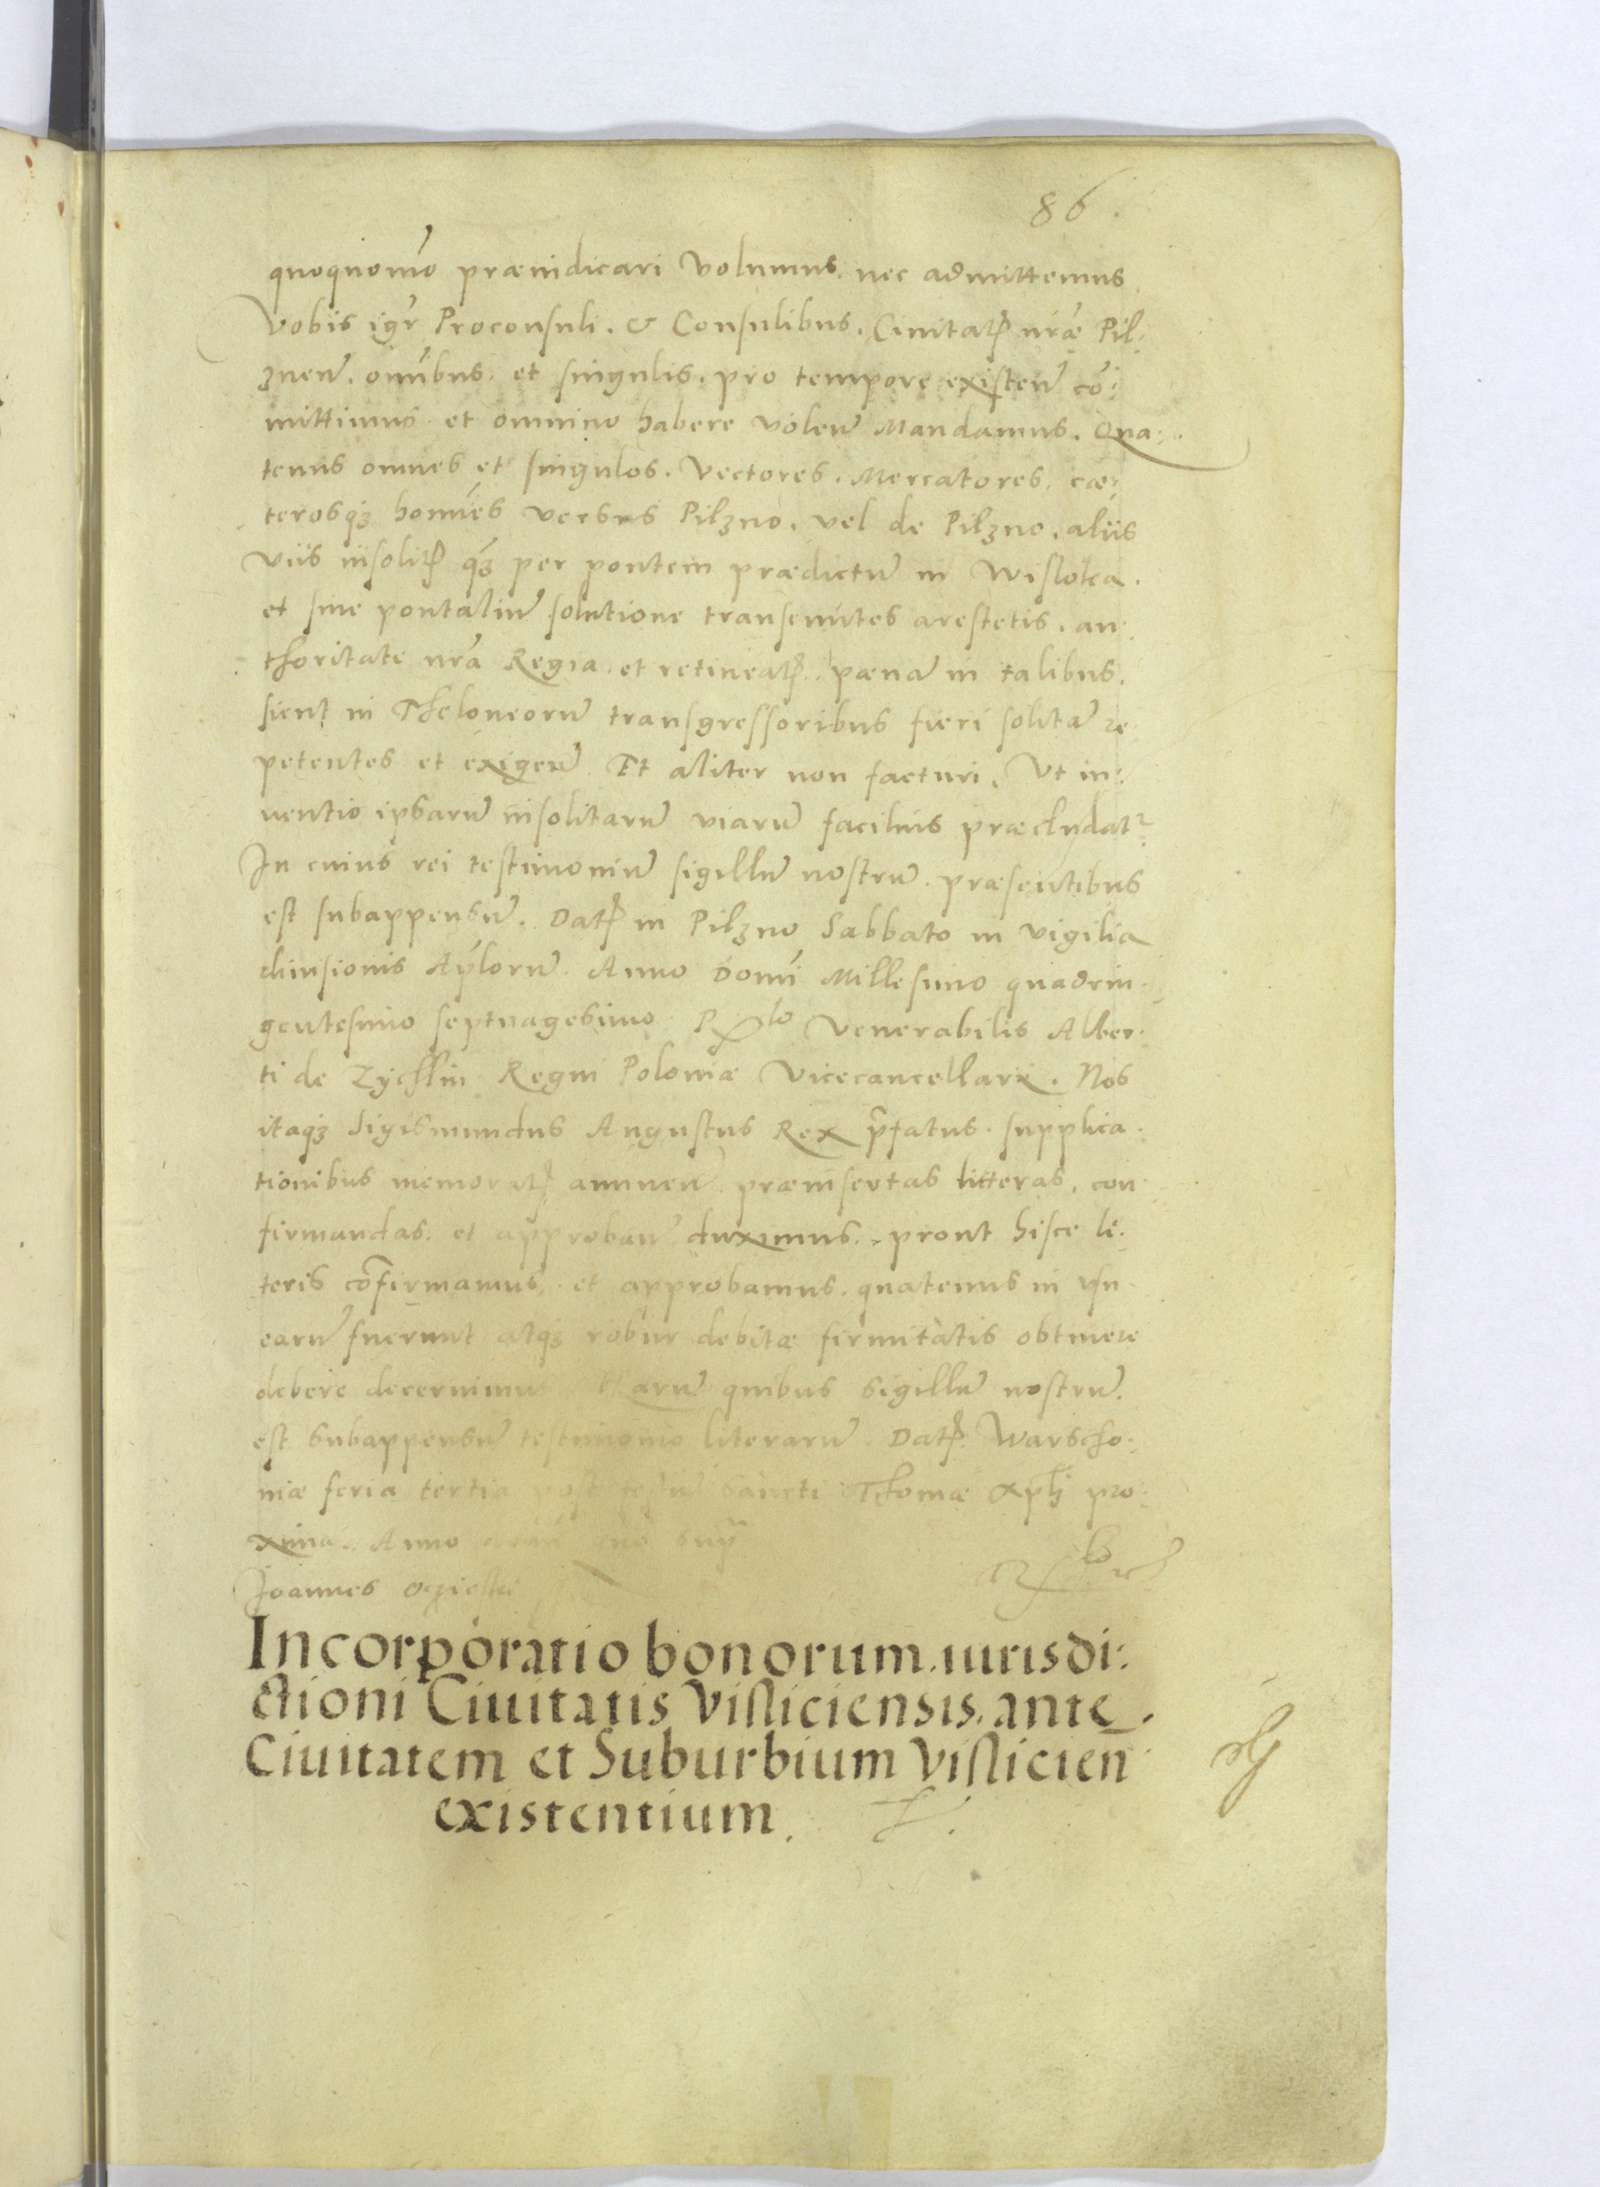 86.
quoquomō præiudicari volumus. nec admittemus
Vobis igr̄ Proconsuli. & Consulibus. Ciuitatꝭ nr̄æ Pil:
zneñ. om̄ibus. et singulis. pro tempore existeñ cō:
mittimus et omnino habere voleñ Mandamus. Qua:
tenus omnes et singulos. Vectores. Mercatores. cæ:
terosqꝫ homīes versus Pilzno. vel de Pilzno. aliis
viis insolitꝭ qꝫ per pontem prædictū in Wisloka.
et sine pontaliū solutione transeuntes arestetis. au:
thoritate nr̄a Regia. et retineatꝭ. pænā in talibus.
sicut in Theloneorū transgressoribus fieri solitā re
petentes et exigeñ Et aliter non facturi. Vt in:
uentio ipsarū insolitarū viarū facilius præcludatr
In cuius rei testimoniū sigillū nostrū. præsentibus
est subappensū. Datꝭ in Pilzno Sabbato in vigilia
diuisionis Ap̄lorū. Anno Domī Millesimo quadrin:
gentesimo septuagesimo Venerabilis Alber:
ti de Zychlin Regni Poloniæ Vicecancellarii. Nos
itaqꝫ Sigismundus Augustus Rex p̄fatus. supplica:
tionibus memoratꝭ annueñ præinsertas litteras. con
firmandas. et approbañ duximus. prout hisce li:
teris cōfirmamus. et approbamus. quatenus in vsu
earū fuerunt atqꝫ robur debitæ firmitatis obtinere
debere decernimus Harū quibus sigillū nostrū.
est subappensū testimonio literarū. Datꝭ Warscho:
uiæ feria tertia post festū Sancti Thomæ pro:
xima. Anno
Joannes
Incorporatio bonorum. iurisdi:
ctioni Ciuitatis Visliciensis. ante.
Ciuitatem et Suburbium Vislicień
existentium.